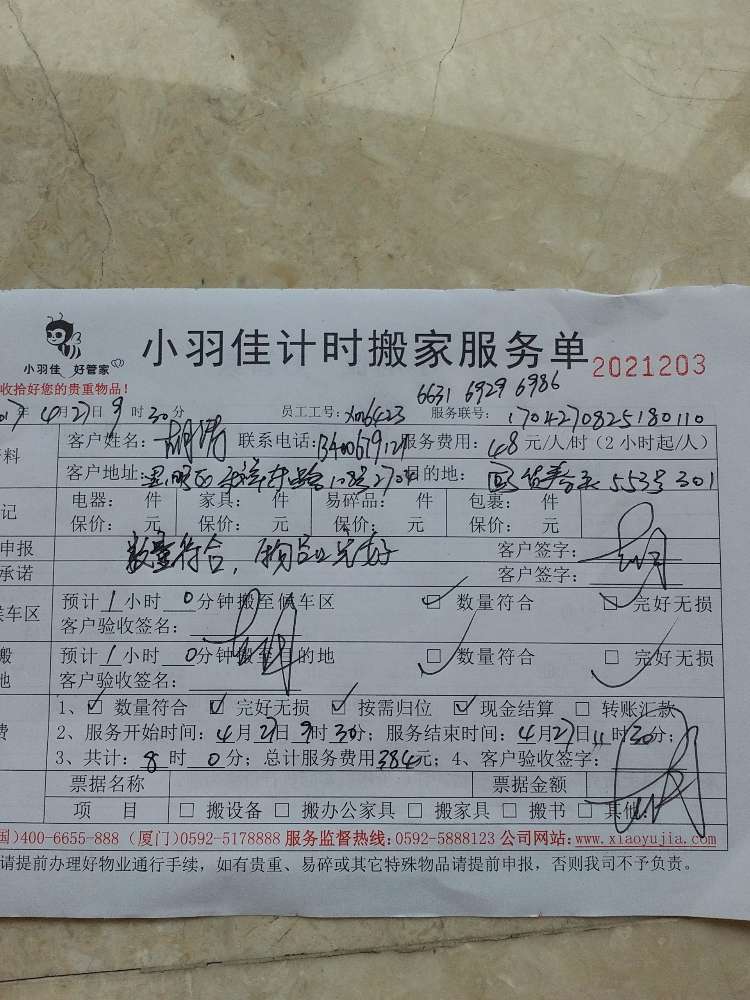 小羽佳 好管家
小羽佳计时搬家服务单 2021203
收拾好您的贵重物品!
6631 6929 6986
年 4月27日9时30分 员工工号: 服务联号: 1704270825180110
客户姓名: 联系电话: 服务费用: 48元/人/时(2小时起/人)
客户地址: 目的地: 553号301
电器: 件 家具: 件 易碎品: 件 包裹: 件
保价: 元 保价: 元 保价: 元 保价: 元
申报 数量符合,物品完好 客户签字:
承诺 客户签字:
预计1小时0分钟搬至候车区 数量符合 完好无损
候车区
客户验收签名:
搬 预计1小时0分钟搬至目的地 数量符合 完好无损
地 客户验收签名:
1、数量符合 完好无损 按需归位 现金结算 转账汇款
费 2、服务开始时间:4月27日9时30分;服务结束时间:4月27日11时30分;
3、共计:8时0分;总计服务费用384元;4、客户验收签字:
票据名称 票据金额
项 目 搬设备 搬办公家具 搬家具 搬书 其他
国)400-6655-888 (厦门)0592-5178888 服务监督热线:0592-5888123 公司网站:www.xiaoyujia.com
请提前办理好物业通行手续,如有贵重、易碎或其它特殊物品请提前申报,否则我司不予负责。